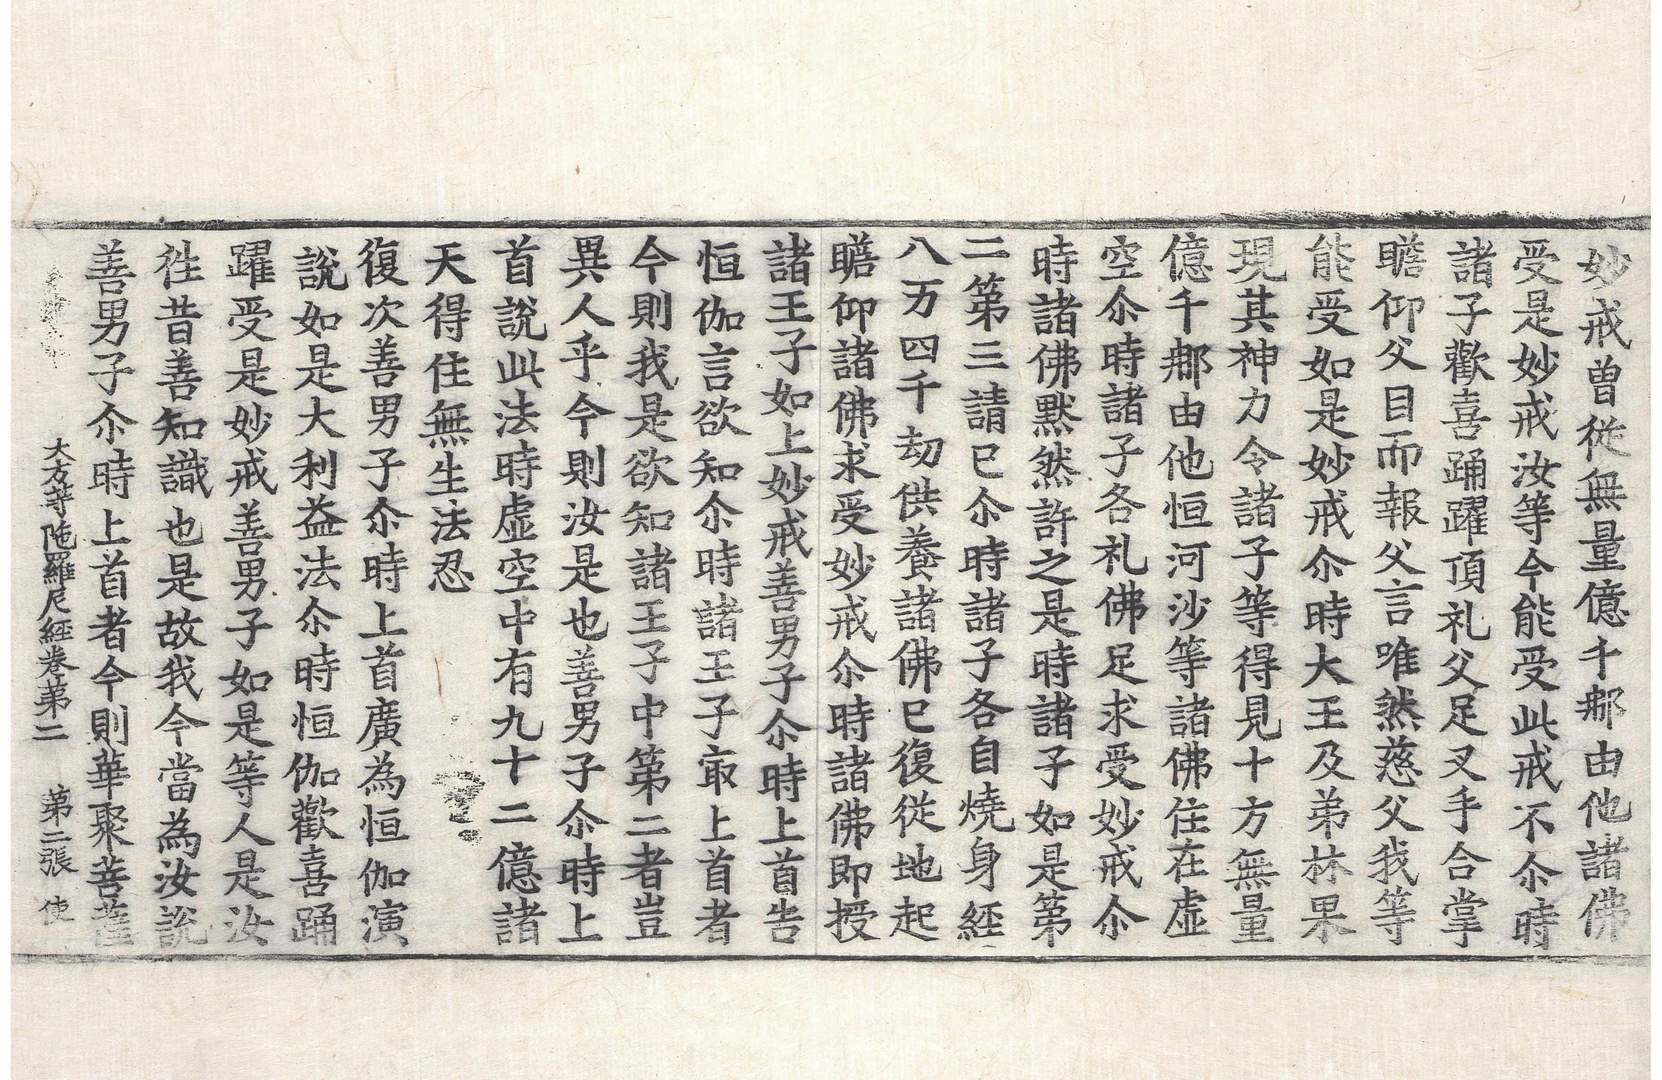 妙戒曾從無量億千那由他諸佛
受是妙戒汝等今能受此戒不尒時
諸子歡喜踊躍頂礼父足叉手合掌
瞻仰父目而報父言唯然慈父我等
能受如是妙戒尒時大王及弟林果
現其神力令諸子等得見十方無量
億千那由他恒河沙等諸佛住在虛
空尒時諸子各礼佛足求受妙戒尒
時諸佛默然許之是時諸子如是第
二第三請已尒時諸子各自燒身經
八万四千劫供養諸佛已復從地起
瞻仰諸佛求受妙戒尒時諸佛即授
諸王子如上妙戒善男子尒時上首告
恒伽言欲知尒時諸王子㝡上首者
今則我是欲知諸王子中第二者豈
異人乎今則汝是也善男子尒時上
首說此法時虛空中有九十二億諸
天得住無生法忍
復次善男子尒時上首廣為恒伽演
說如是大利益法尒時恒伽歡喜踊
躍受是妙戒善男子如是等人是汝
徃昔善知識也是故我今當為汝說
善男子尒時上首者今則華聚菩薩
大方等陁羅尼經卷第二 第二張 使